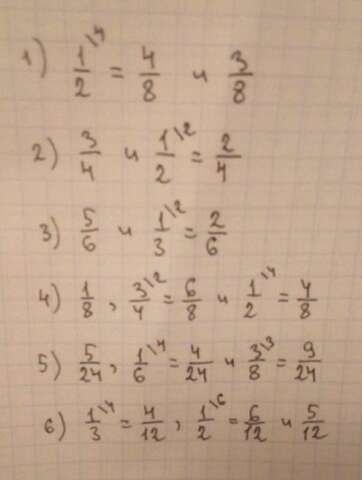 1) 1/2 \4 = 4/8 и 3/8
2) 3/4 и 1/2 \2 = 2/4
3) 5/6 и 1/3 \2 = 2/6
4) 1/8 , 3/4 \2 = 6/8 и 1/2 \4 = 4/8
5) 5/24 , 1/6 \4 = 4/24 и 3/8 \3 = 9/24
6) 1/3 \4 = 4/12 , 1/2 \6 = 6/12 и 5/12